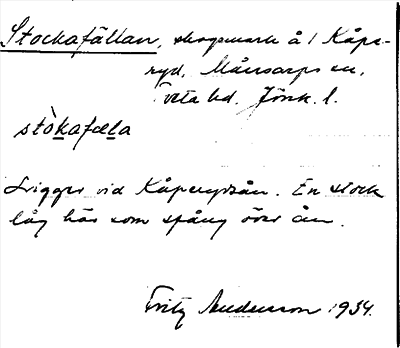 Stockafällan, skogsmark å/ Kåpe-
ryd, Månsarps sn,
Tveta hd. Jönk. l.
stòkafæla
Ligger vid Kåperydsån. En stock
låg här som spång över ån.
Fritz Anderson 1934.